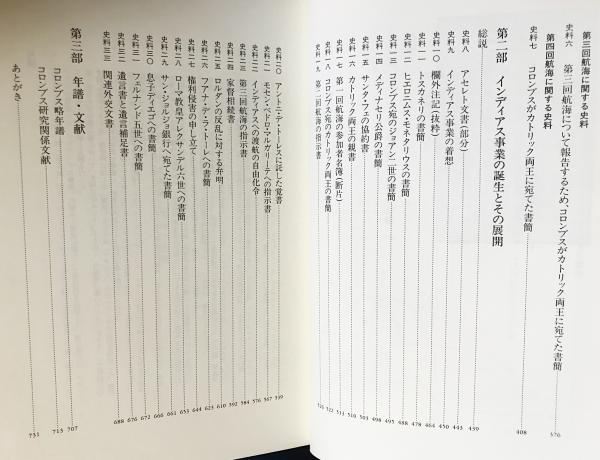 第三回航海に関する史料
史料六 第三回航海について報告するため、コロンブスがカトリック両王に宛てた書簡 376
第四回航海に関する史料
史料七 コロンブスがカトリック両王に宛てた書簡 408
第二部 インディアス事業の誕生とその展開
総説 439
史料八 アセレト文書(部分) 443
史料九 インディアス事業の着想 450
史料一〇 欄外注記(抜粋) 464
史料一一 トスカネリの書簡 478
史料一二 ヒエロニムス・モネタリウスの書簡 488
史料一三 コロンブス宛のジョアン二世の書簡 495
史料一四 メディナセリ公爵の書簡 498
史料一五 サンタ・フェの協約書 503
史料一六 カトリック両王の親書 510
史料一七 第一回航海の参加者名簿(断片) 513
史料一八 コロンブス宛のカトリック両王の書簡 522
史料一九 第二回航海の指示書
史料二〇 アントニオ・デ・トーレスに託した覚書 539
史料二一 モセン・ペドロ・マルガリーテへの指示書 567
史料二二 インディアスへの渡航の自由化令 576
史料二三 第三回航海の指示書 584
史料二四 家督相続書 592
史料二五 ロルダンの反乱に対する弁明 610
史料二六 フアナ・デ・ラ・トーレへの書簡 623
史料二七 権利侵害の申し立て 644
史料二八 ローマ教皇アレクサンデル六世への書簡 652
史料二九 サン・ジョルジョ銀行へ宛てた書簡 661
史料三〇 息子ディエゴへの書簡 666
史料三一 フェルナンド五世への書簡 672
史料三二 遺言書と遺言補足書 676
史料三三 関連外交文書 688
第三部 年譜・文献
コロンブス略年譜 707
コロンブス研究関係文献 713
あとがき 731